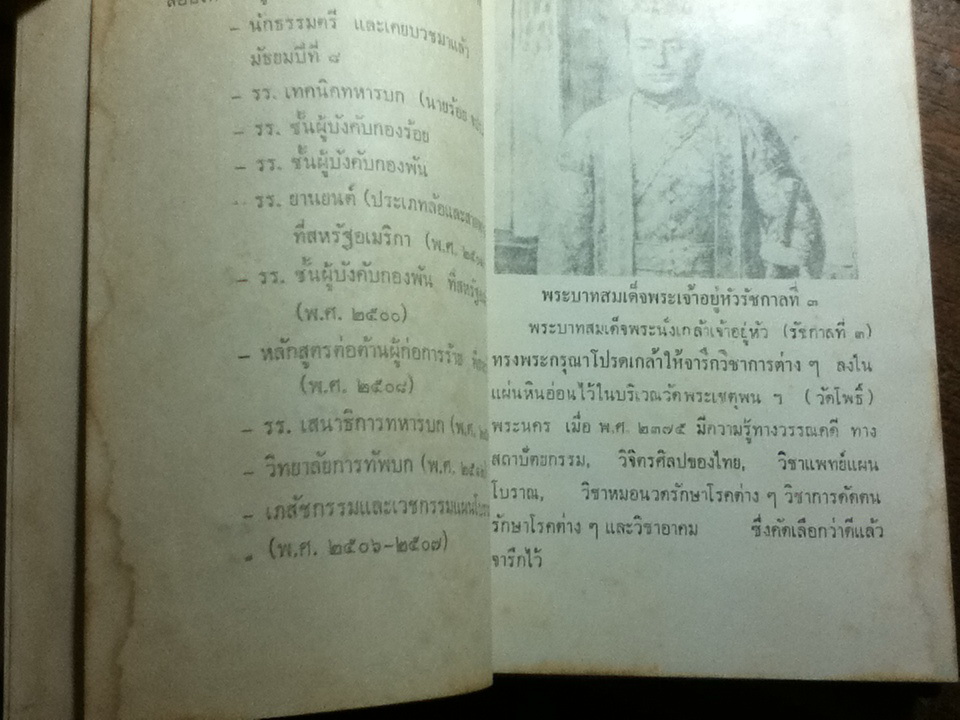 – นักธรรมตรี และเคยบวชมาแล้ว
มัธยมปีที่ ๘
– รร. เทคนิคทหารบก (นายร้อย
– รร. ชั้นผู้บังคับกองร้อย
– รร. ชั้นผู้บังคับกองพัน
– รร. ยานยนต์ (ประเภทล้อและสายพาน
ที่สหรัฐอเมริกา (พ.ศ.
– รร. ชั้นผู้บังคับกองพัน ที่สหรัฐ
(พ.ศ. ๒๕๐๐)
– หลักสูตรต่อต้านผู้ก่อการร้าย
(พ.ศ. ๒๕๐๘)
– รร. เสนาธิการทหารบก (พ.ศ.
– วิทยาลัยการทัพบก (พ.ศ.
– เภสัชกรรมและเวชกรรมแผนโบราณ
– (พ.ศ. ๒๕๐๖-๒๕๐๗)
พระบาทสมเด็จพระเจ้าอยู่หัวรัชกาลที่ ๓
พระบาทสมเด็จพระนั่งเกล้าเจ้าอยู่หัว (รัชกาลที่ ๓)
ทรงพระกรุณาโปรดเกล้าให้จารึกวิชาการต่าง ๆ ลงใน
แผ่นหินอ่อนไว้ในบริเวณวัดพระเชตุพน ฯ (วัดโพธิ์)
พระนคร เมื่อ พ.ศ. ๒๓๗๕ มีความรู้ทางวรรณคดี ทาง
สถาปัตยกรรม, วิจิตรศิลปของไทย, วิชาแพทย์แผน
โบราณ, วิชาหมอนวดรักษาโรคต่าง ๆ วิชาการดัดตน
รักษาโรคต่าง ๆ และวิชาอาคม ซึ่งคัดเลือกว่าดีแล้ว
จารึกไว้